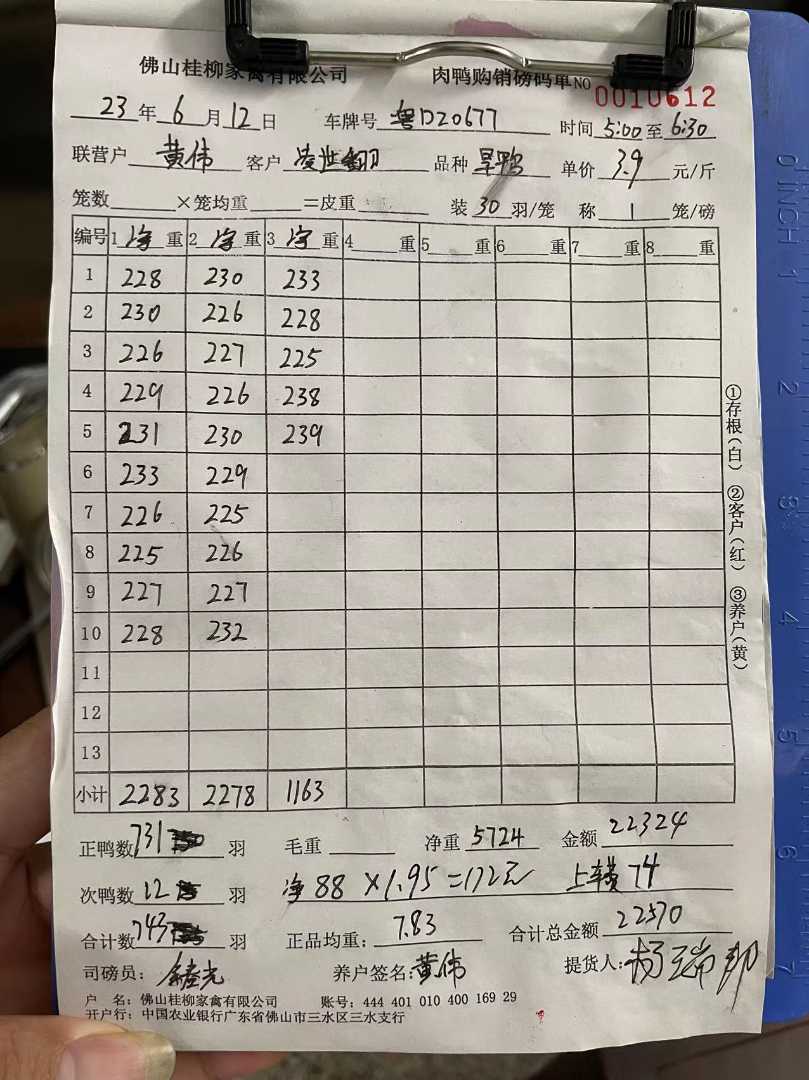 佛山桂柳家禽有限公司 肉鸭购销磅码单 NO 0010612
23年6月12日 车牌号 粤D20677 时间 5:00至6:30
联营户 黄伟 客户 品种 旱鸭 单价 3.9 元/斤
笼数 ×笼均重 =皮重 装 30 羽/笼 称 1 笼/磅
编号 1 净重 2 净重 3 净重 4 重 5 重 6 重 7 重 8 重
1 228 230 233
2 230 226 228
3 226 227 225
4 229 226 238
5 231 230 239
6 233 229
7 226 225
8 225 226
9 227 227
10 228 232
11
12
13
小计 2283 2278 1163
①存根(白) ②客户(红) ③养户(黄)
正鸭数 731 羽 毛重 净重 5724 金额 22324
次鸭数 12 羽 净88×1.95=172元 上车费74
合计数 743 羽 正品均重: 7.83 合计总金额 22570
司磅员: 养户签名: 黄伟 提货人: 杨瑞邦
户 名: 佛山桂柳家禽有限公司 账号: 444 401 010 400 169 29
开户行: 中国农业银行广东省佛山市三水区三水支行
0 INCH 1
2
3
4
6
7